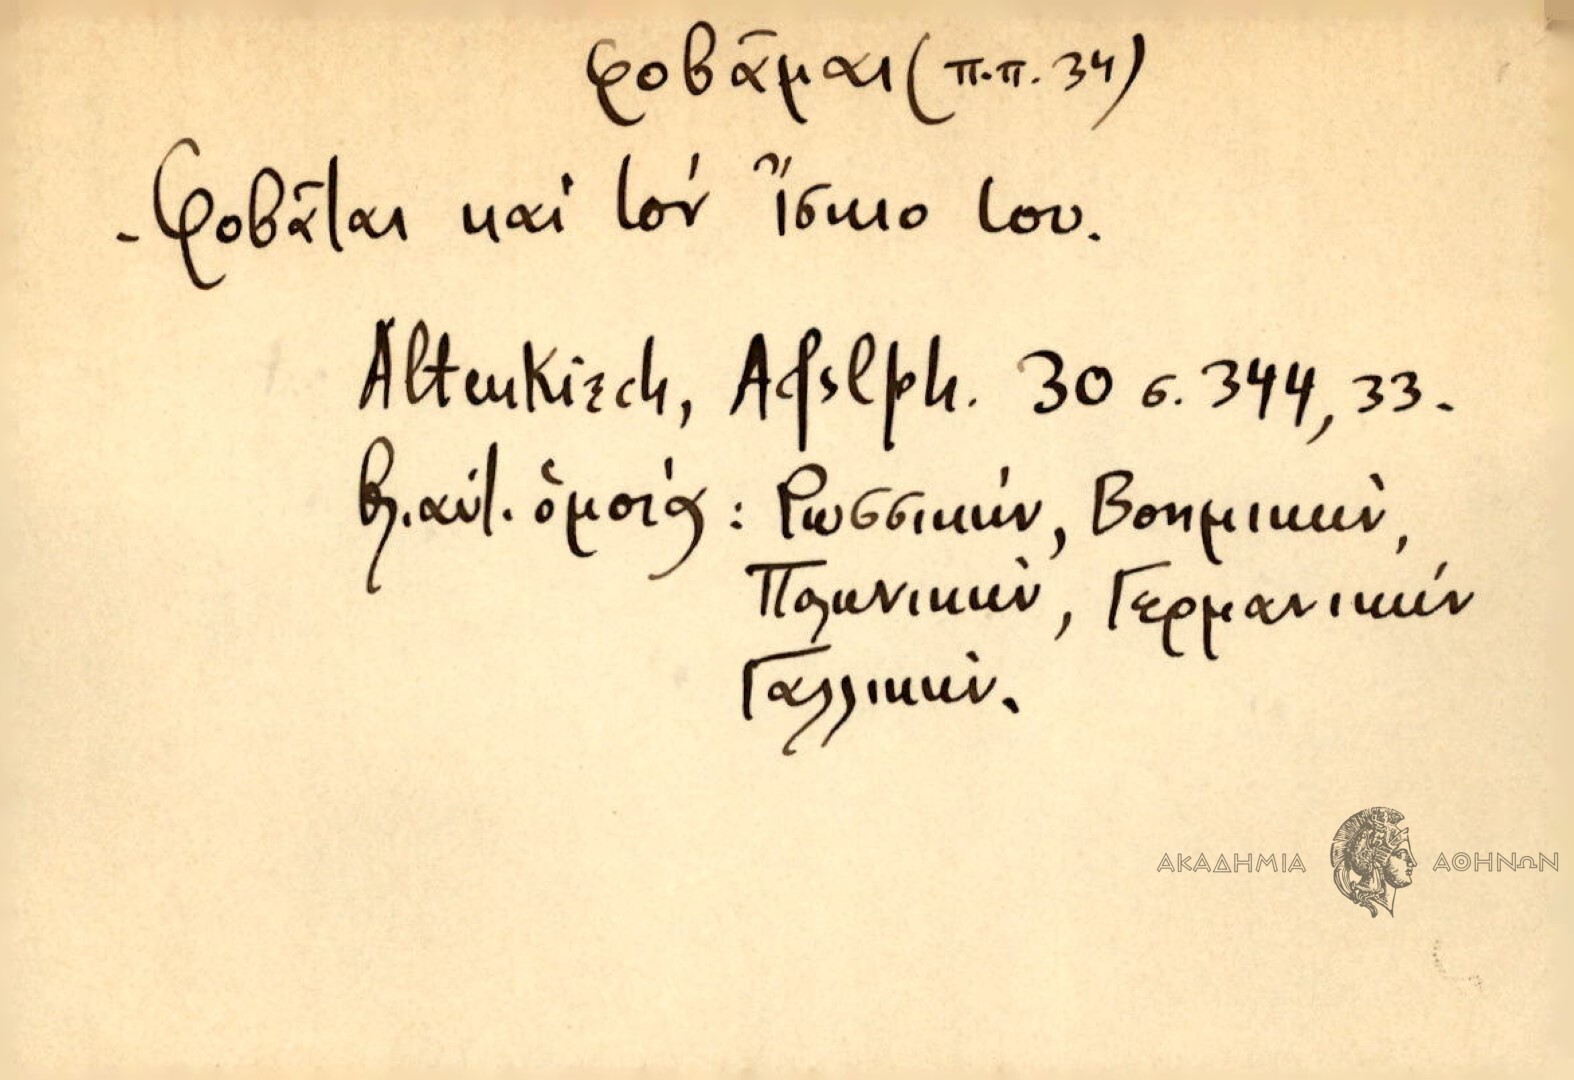 φοβᾶμαι (π.π. 34)
- Φοβᾶται καὶ τόν ἴσκιο του.
Altenkirch, Afslph. 30 σ. 344, 33.
βλ. αὐτ. ὁμοίας : Ρωσσικήν, Βοημικὴν,
Πολωνικὴν, Γερμανικήν
Γαλλικὴν.
ΑΚΑΔΗΜΙΑ ΑΘΗΝΩΝ